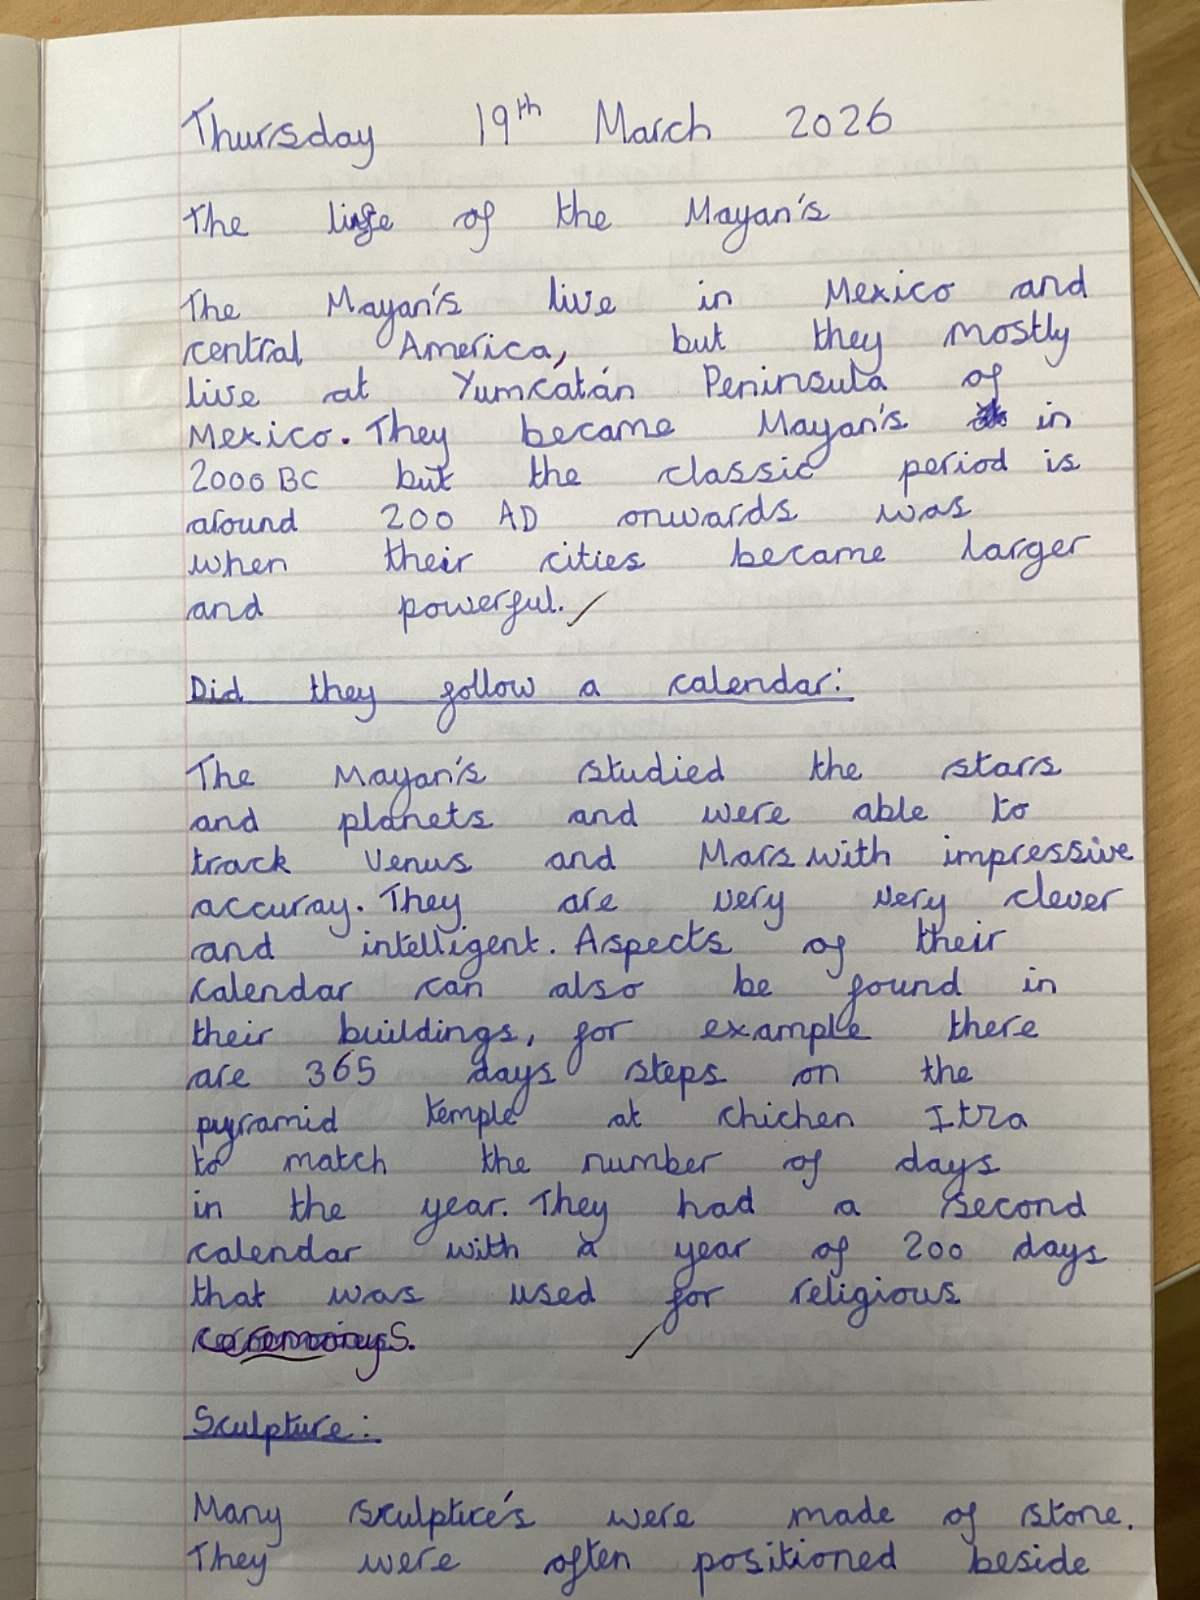 Thursday 19th March 2026
The life of the Mayan's
The Mayan's live in Mexico and
central America, but they mostly
live at Yumcátán Peninsula of
Mexico. They became Mayan's in
2000 BC but the classic period is
around 200 AD onwards was
when their cities became larger
and powerful.
Did they follow a calendar:
The Mayan's studied the stars
and planets and were able to
track Venus and Mars with impressive
accuray. They are very very clever
and intelligent. Aspects of their
calendar can also be found in
their buildings, for example there
are 365 days steps on the
pyramid temple at chichen Itza
to match the number of days
in the year. They had a second
calendar with a year of 200 days
that was used for religious
Sculpture:
Many were made of stone.
They were often positioned beside